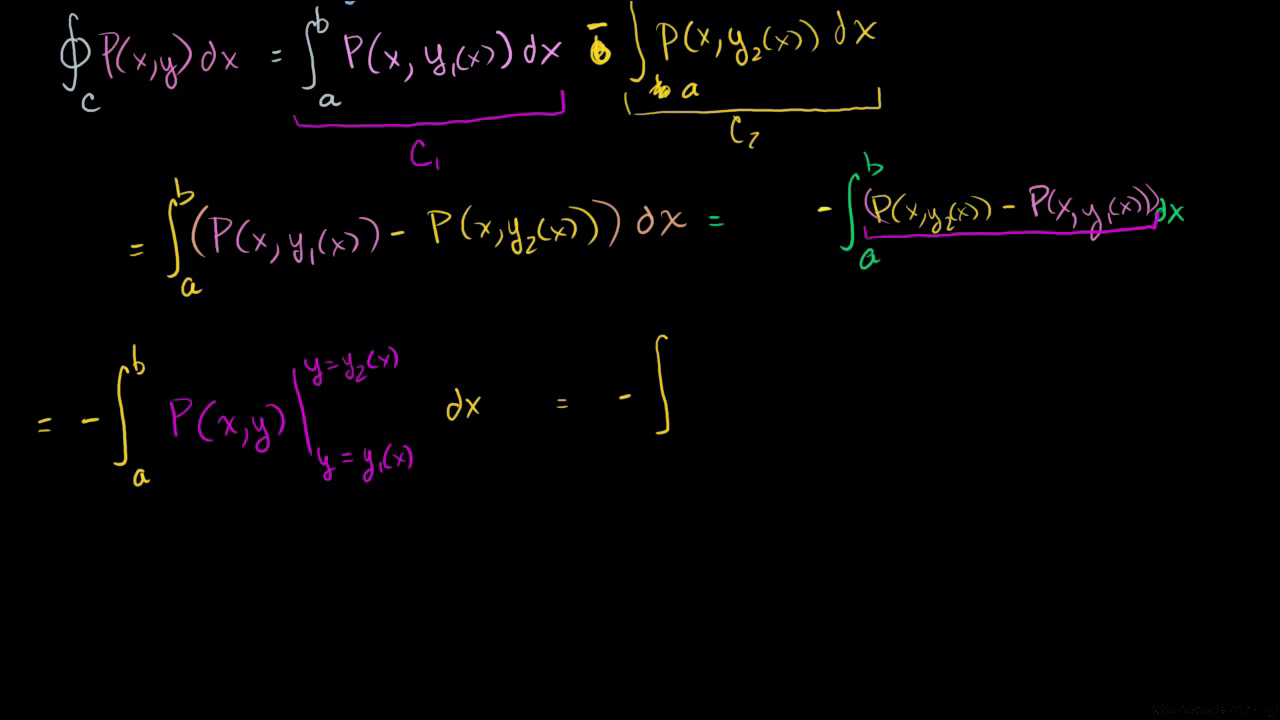 ∮_C P(x,y)dx = ∫_a^b P(x, y₁(x)) dx - ∫_a P(x, y₂(x)) dx
C₁ C₂
= ∫_a^b (P(x, y₁(x)) - P(x, y₂(x))) dx = - ∫_a^b (P(x, y₂(x)) - P(x, y₁(x))) dx
= - ∫_a^b P(x,y) |_{y = y₁(x)}^{y = y₂(x)} dx = - ∫